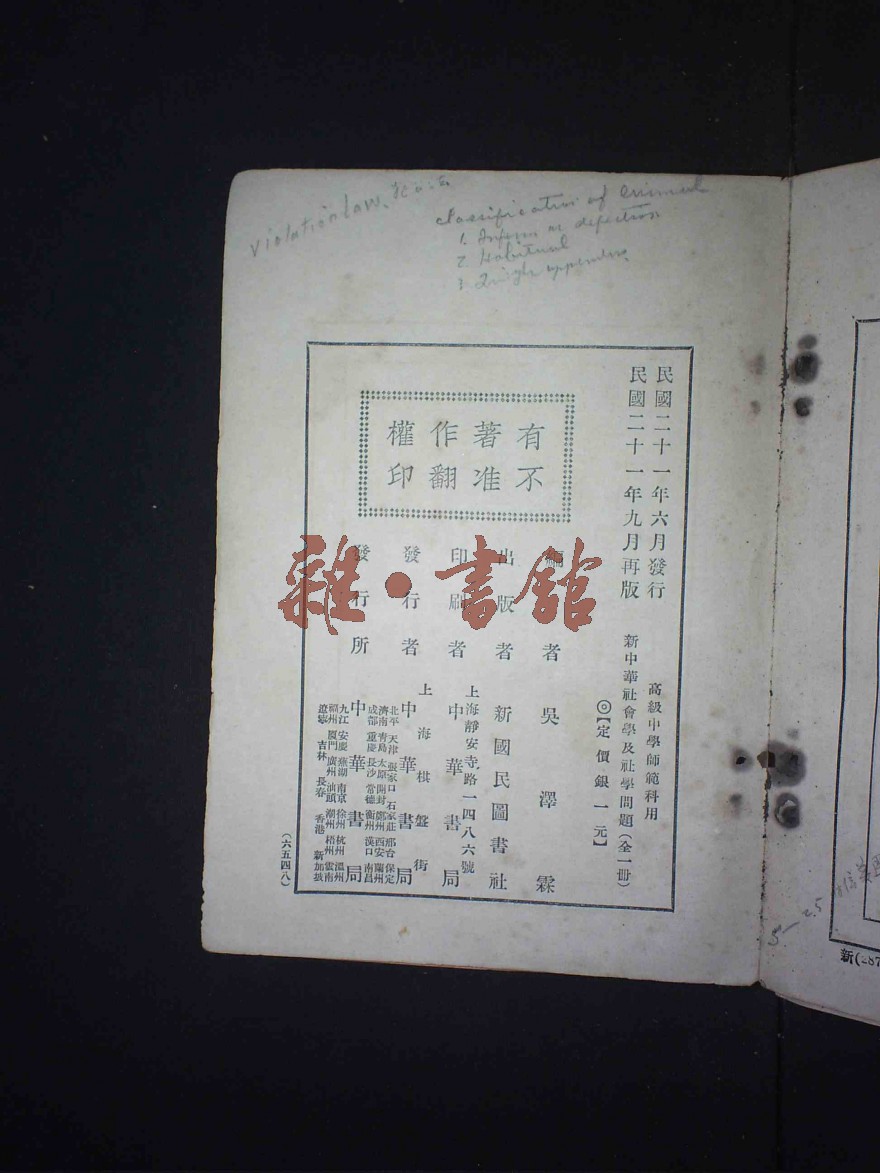 violation law.
classification of criminal
1.
2. Habitual
3.
民國二十一年六月發行
民國二十一年九月再版
有著作權
不准翻印
高級中學師範科用
新中華社會學及社學問題（全一冊）
◎【定價銀一元】
編者 吳澤霖
出版者 新國民圖書社
印刷者 上海靜安寺路一四八六號
中華書局
發行者 上海棋盤街
中華書局
發行所 中華書局
北平 天津 張家口 石家莊 邢台 保定
濟南 青島 太原 開封 鄭州 西安 蘭州
成都 重慶 長沙 常德 衡州 漢口 南昌
九江 安慶 蕪湖 南京 徐州 杭州 溫州
福州 廈門 廣州 汕頭 潮州 梧州 雲南
遼寧 吉林 長春 香港 新加坡
（六五四八）
雜·書館
新(287